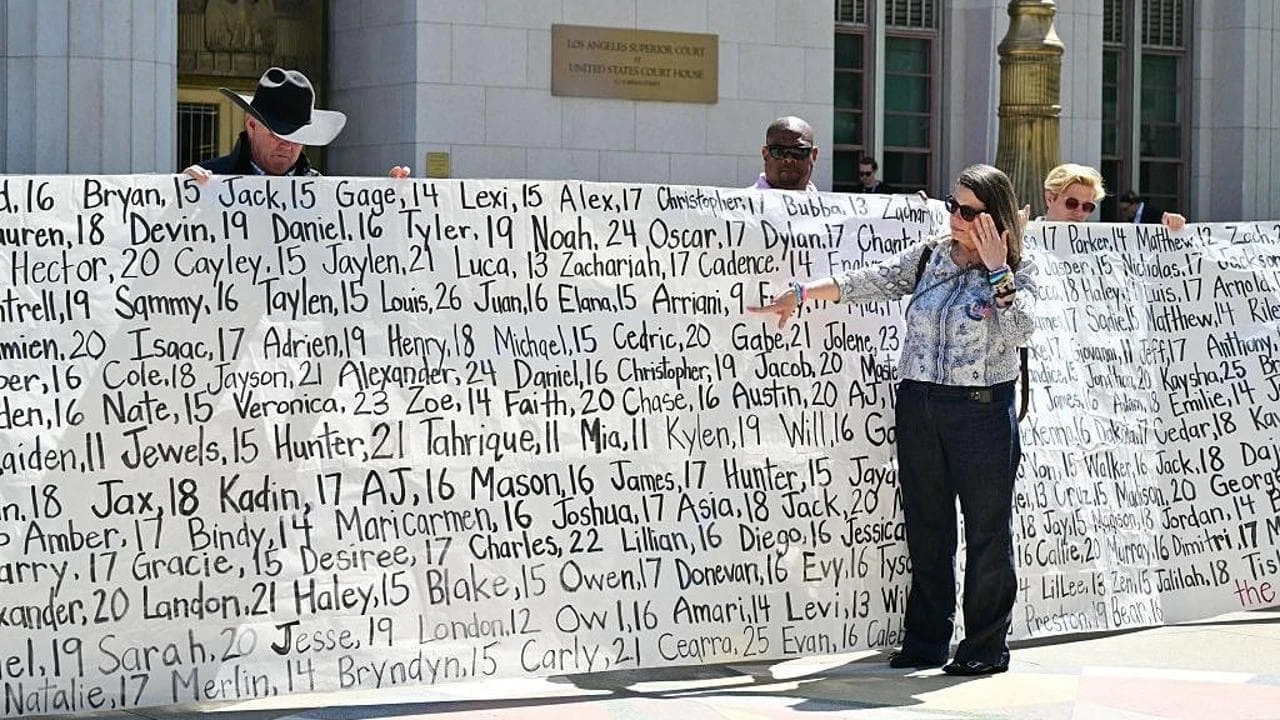 LOS ANGELES SUPERIOR COURT
AT
UNITED STATES COURT HOUSE
16 Bryan, 15 Jack, 15 Gage, 14 Lexi, 15 Alex, 17 Christopher, 17 Bubba, 13
18 Devin, 19 Daniel, 16 Tyler, 19 Noah, 24 Oscar, 17 Dylan, 17
Hector, 20 Cayley, 15 Jaylen, 21 Luca, 13 Zachariah, 17 Cadence, 14
19 Sammy, 16 Taylen, 15 Louis, 26 Juan, 16 Elana, 15 Arriani, 9
20 Isaac, 17 Adrien, 19 Henry, 18 Michael, 15 Cedric, 20 Gabe, 21 Jolene, 23
16 Cole, 18 Jayson, 21 Alexander, 24 Daniel, 16 Christopher, 19 Jacob, 20
16 Nate, 15 Veronica, 23 Zoe, 14 Faith, 20 Chase, 16 Austin, 20 AJ,
aiden, 11 Jewels, 15 Hunter, 21 Tahrique, 11 Mia, 11 Kylen, 19 Will, 16
18 Jax, 18 Kadin, 17 AJ, 16 Mason, 16 James, 17 Hunter, 15
Amber, 17 Bindy, 14 Maricarmen, 16 Joshua, 17 Asia, 18 Jack, 20
arry, 17 Gracie, 15 Desiree, 17 Charles, 22 Lillian, 16 Diego, 16 Jessica
xander, 20 Landon, 21 Haley, 15 Blake, 15 Owen, 17 Donevan, 16 Evy, 16
el, 19 Sarah, 20 Jesse, 19 London, 12 Owl, 16 Amari, 14 Levi, 13
Natalie, 17 Merlin, 14 Bryndyn, 15 Carly, 21 Cearra, 25 Evan, 16
17 Parker, 14 Matthew, 12 Zach,
Jasper, 15 Nicholas, 17 Jackson
18 Haley, Luis, 17 Arnold,
17 Sadie, 15 Matthew, 14
Giovanni, 11 Jeff, 17 Anthony,
Kaysha, 25
Adam, 18 Emilie, 14
Dakota, 17 Cedar, 18
Von, 15 Walker, 16 Jack, 18
13 Cruz, 15 Madison, 20
18 Jay, 15 Magson, 18 Jordan, 14
16 Callie, 20 Murray, 16 Dimitri, 17
14 LilLee, 13 Zen, 15 Jalilah, 18
Preston, 19 Bear, 16
the